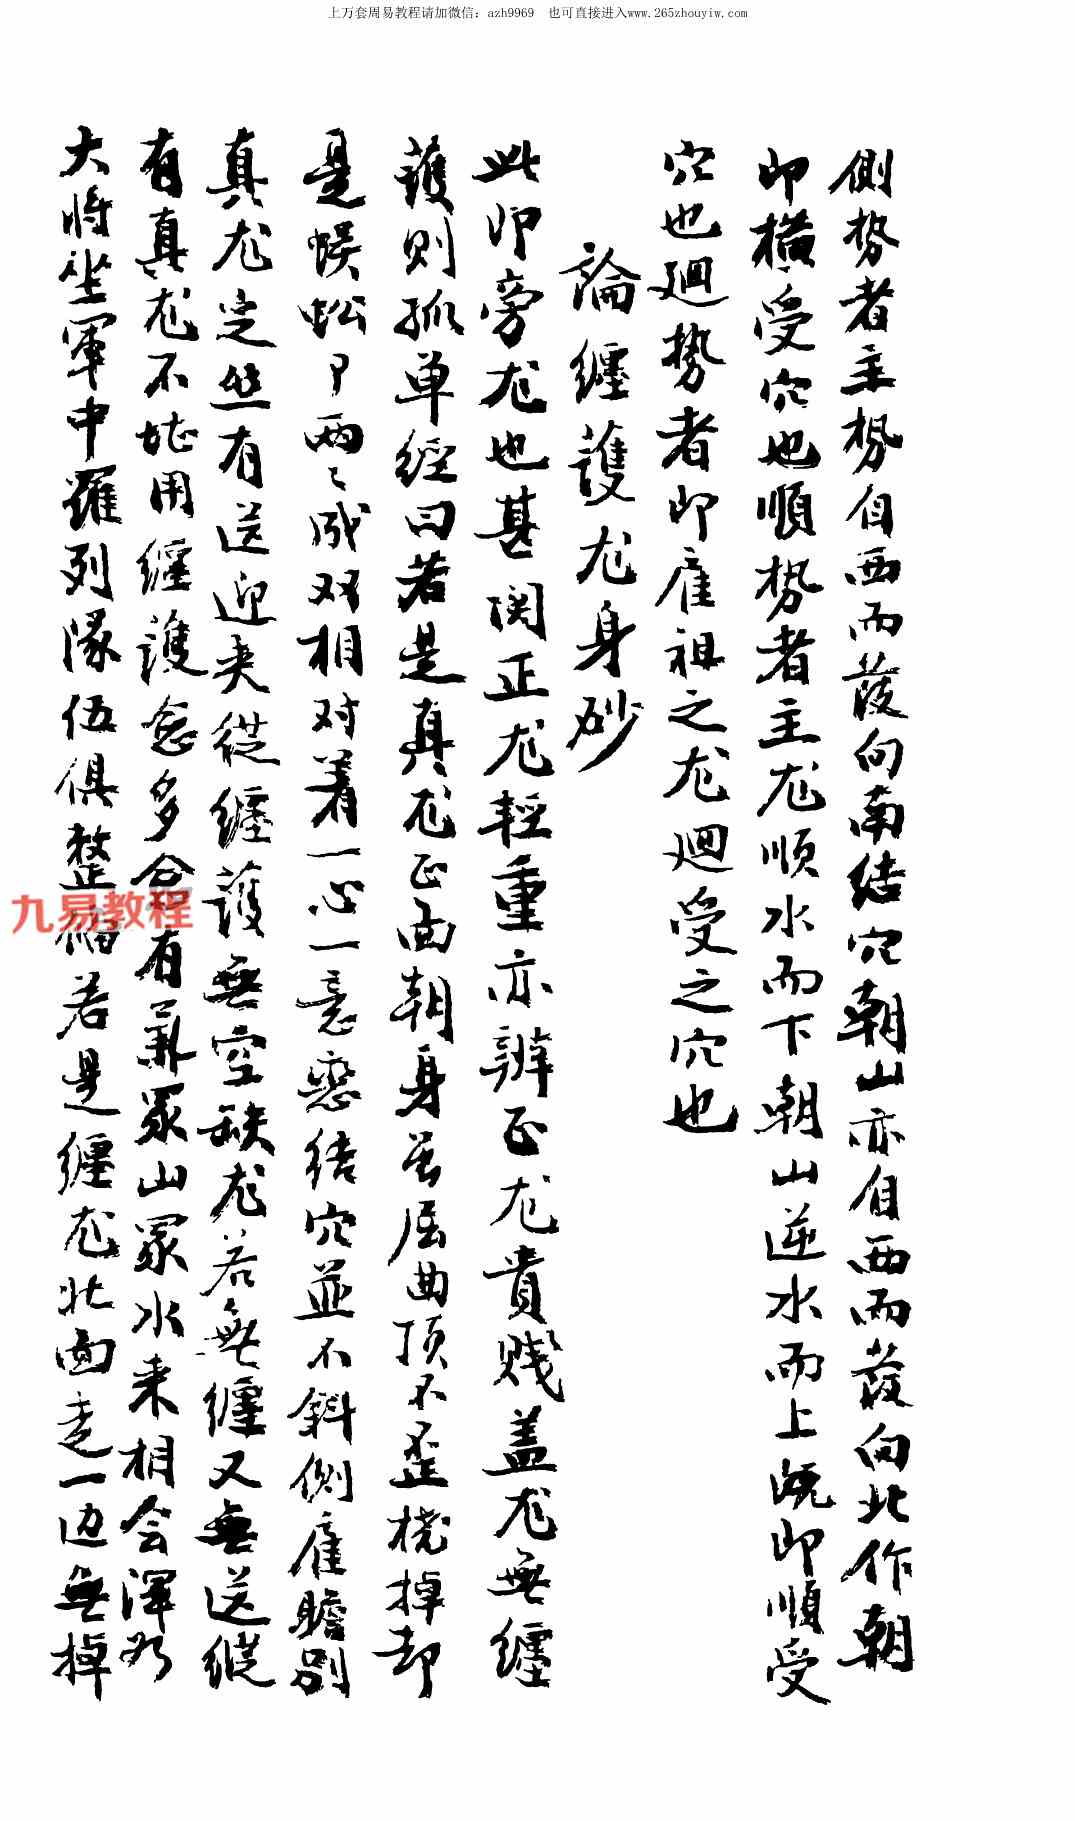 上万套周易教程请加微信：azh9969 也可直接进入www.265zhouyiw.com
側势者主势自西而葭向南结穴朝山亦自西而葭向北作朝
即横受穴也順势者主尨順水而下朝山逆水而上既即順受
穴也廻勢者即雇祖之尨廻受之穴也
論纏護尨身砂
此即旁尨也甚関正尨輕重亦辨正尨貴賤盖尨無纏
護则孤单經曰若是真尨正面朝身虽屈曲顶不歪桡掉却
是蜈蚣了两〻成双相对着一心一意恋结穴並不斜側雇瞻别
真尨定然有送迎夹從纏護無空缺尨若無纏又無送縱
有真尨不堪用纏護愈多合有氣眾山眾水来相会渾如
大将坐軍中羅列隊伍俱整俻若是纏尨北面走一边無掉
九易教程